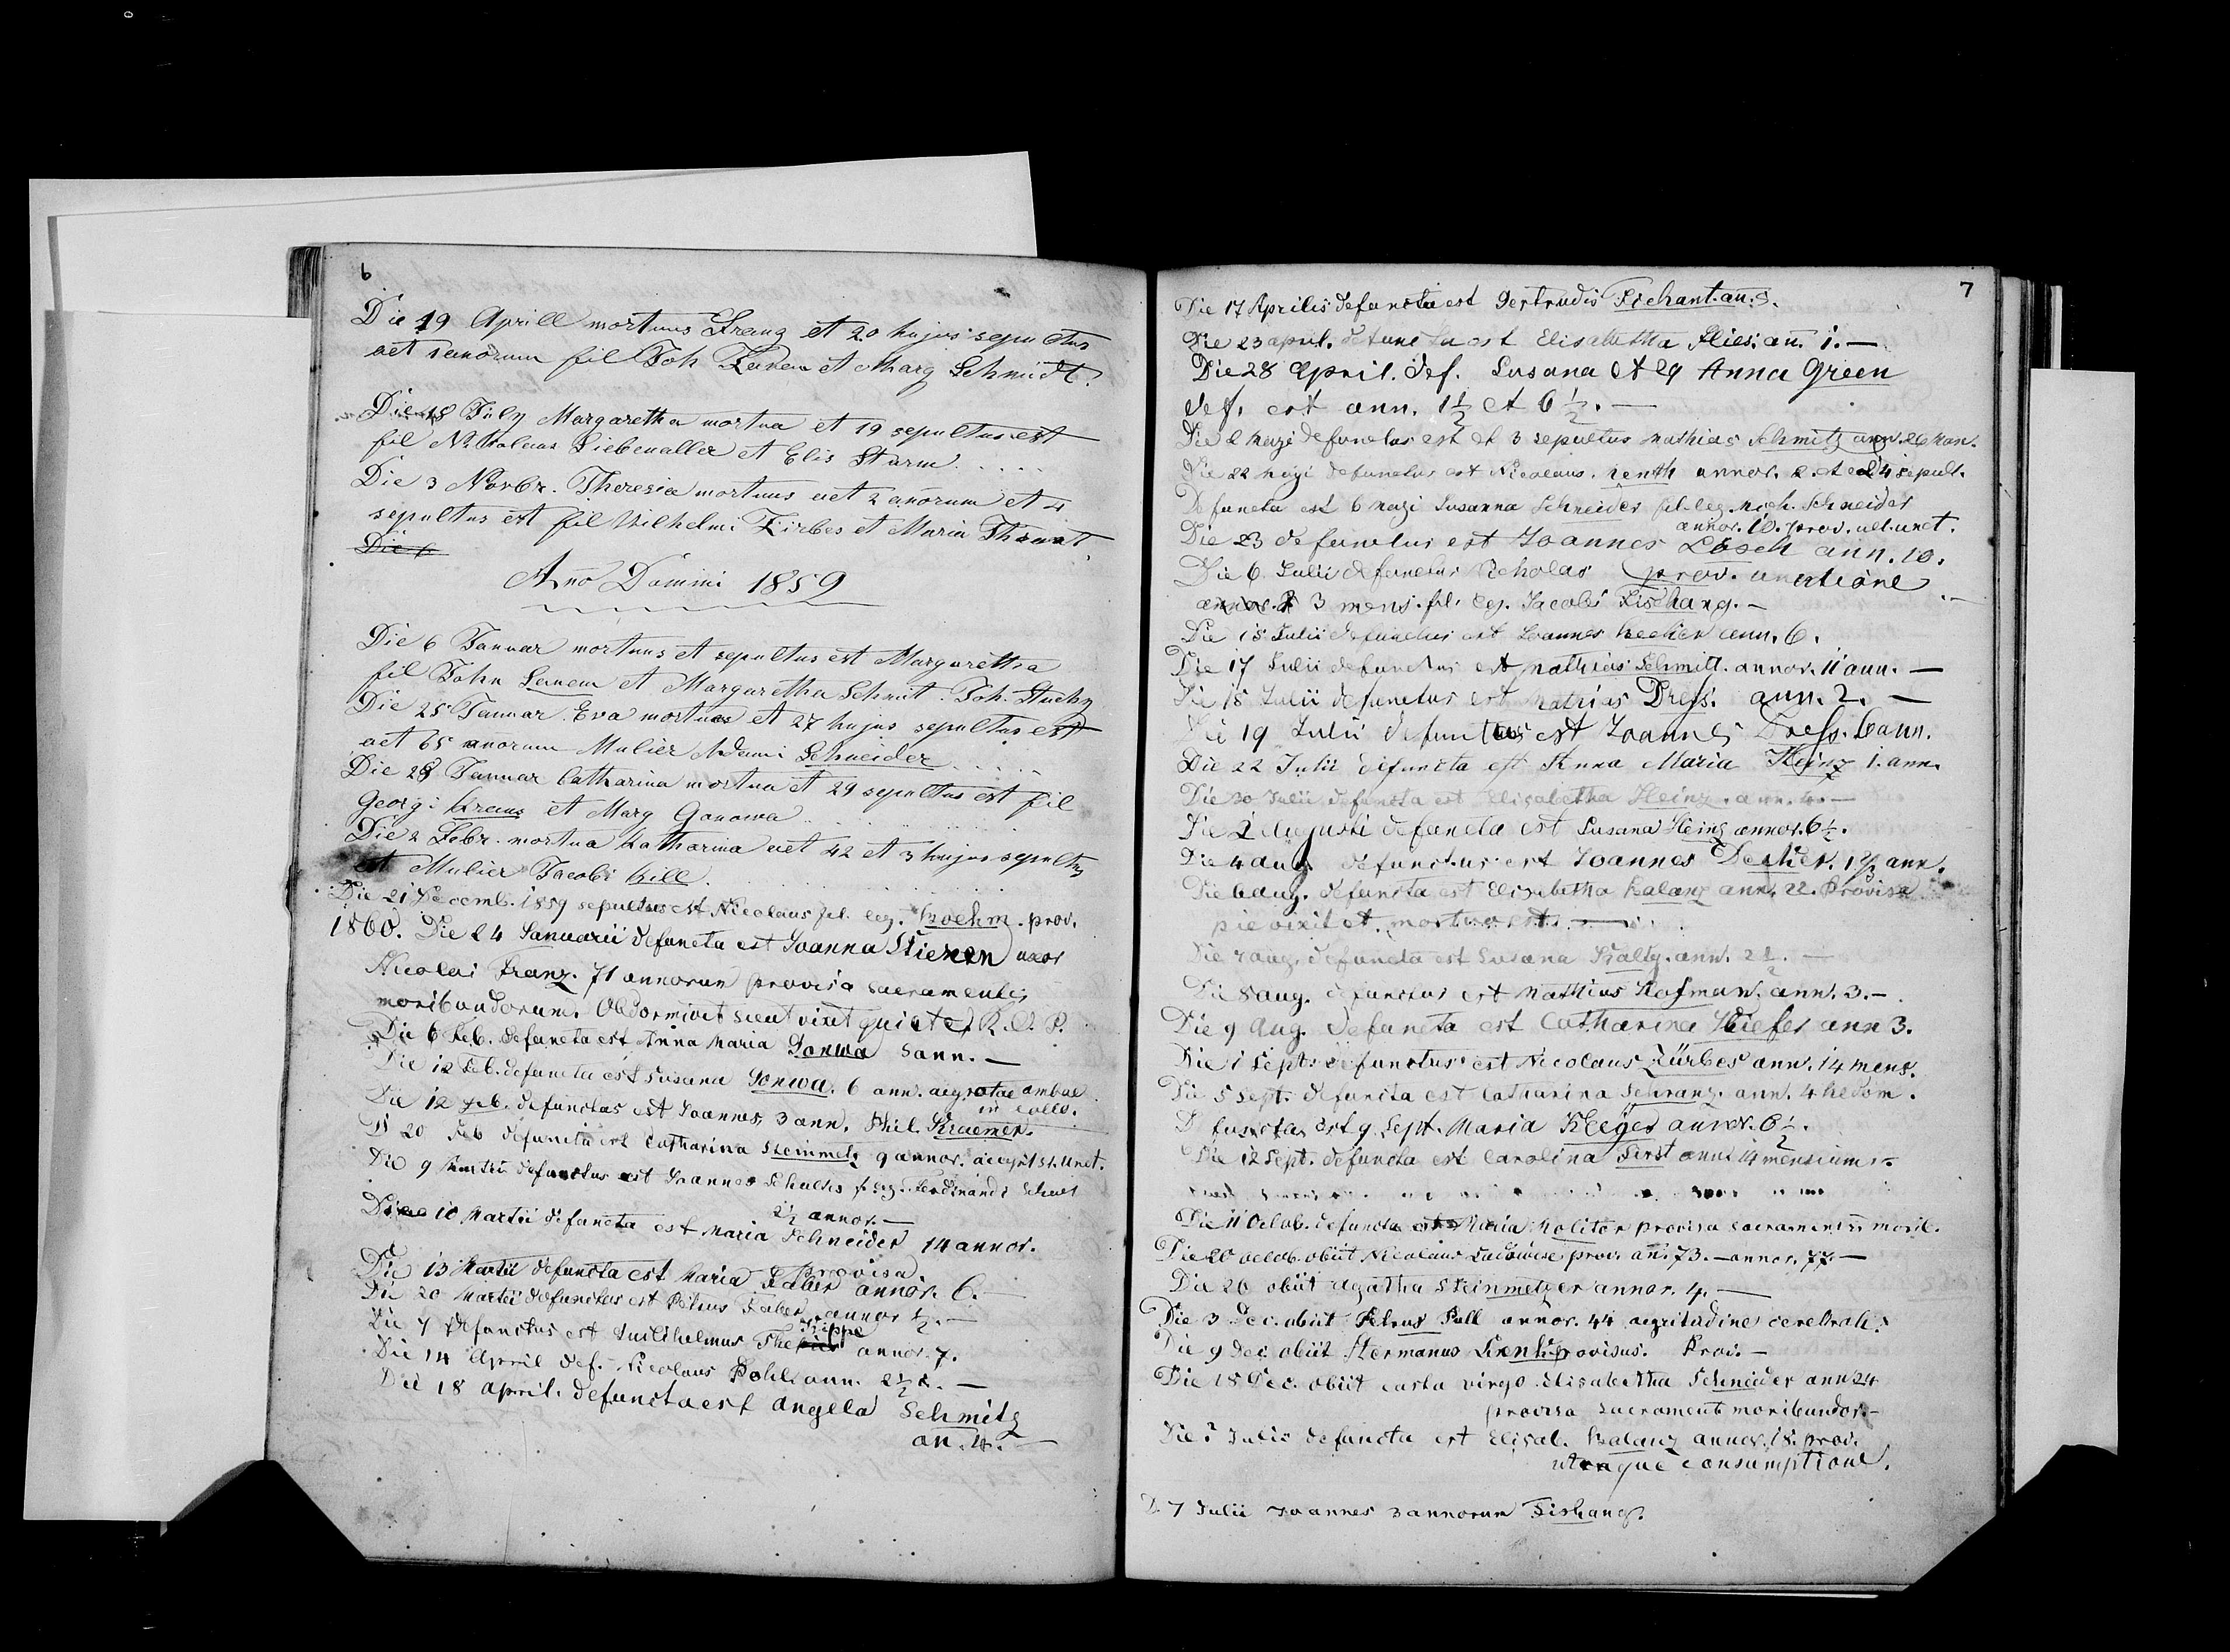 6
Die 19 Aprill mortuus Franz et 20 hujus sepultus
aet anorum fil Joh et Marg Schmidt.
Die 18 July Margaretha mortua et 19 sepultus est
fil Nikolaus Liebenaller et Elis Sturm . . . .
Die 3 Novbr. Theresia mortuus aet 2 anorum et 4
sepultus est fil Wilhelmi Zirbes et Maria
Die 6
Ano Domini 1859
Die 6 Januar mortuus et sepultus est Margaretha
fil John et Margaretha Schmit. Joh. Stuchy
Die 25 Januar Eva mortua et 27 hujus sepultus est
aet 65 anorum Mulier Adami Schneider . . . . .
Die 28 Januar Catharina mortua et 29 sepultus est fil
Georg: Kraus et Marg Gonowa
Die 2 Febr. mortua Katharina aet 42 et 3 hujus sepultus
est Mulier Jacobi Kill.
Die 21 Decemb. 1859 sepultus est Nicolaus fil. leg. Boehm. prov.
1860. Die 24 Januarii defuncta est Joanna Stienen uxor
Nicolai Franz. 71 annorum provisa sacramentis
moribundorum. Obdormivit sicut vixit quiete. R. I. P.
Die 6 Feb. defuncta est Anna Maria Sonwa 5 ann. —
Die 12 Feb. defuncta est Susana Sonwa. 6 ann. aegrotae ambae
in collo.
Die 12 feb. defunctus est Joannes, 3 ann. Phil. Kraemer.
D 20 Feb defuncta est Catharina Steinmetz 9 annor. accepit st. Unct.
Die 9 Martii defunctus est Joannes Schultes f. leg. Ferdinandi
2½ annor. —
Die 10 Martii defuncta est Maria Schneider 14 annor.
provisa.
Die 13 Martii defuncta est Maria Faber annor. 6. —
Die 20 Martii defunctus est Petrus Faber annor ½. —
Die 7 defunctus est Guilhelmus annor. 7.
Die 14 April def. Nicolaus Pohl ann. 2½. —
Die 18 april. defuncta est Angela Schmitz
an. 4. —
7
Die 17 Aprilis defuncta est Gertrudis Fischant. an.
Die 23 april. defuncta est Elisabetha Flies. an. 1. —
Die 28 April. def. Susana et 29 Anna Green
def. est ann. 1½ et 6½. —
Die 2 Maji defunctus est et 3 sepultus Mathias Schmitz ann. 26
Die 22 Maji defunctus est Nicolaus Zenth annor. 2. et 24 sepult.
Defuncta est 6 Maji Susanna Schneider fil. leg. Mich. Schneider
annor. 10. prov. ult. unct.
Die 23 defunctus est Joannes Lösch ann. 10.
prov. unctione
Die 6 Julii defunctus Nicholas
3 mens. fil. leg. Jacobi Fischang. —
Die 15 Julii defunctus est Joannes Becker ann. 6.
Die 17 Julii defunctus est Mathias Schmitt. annor. 11 ann. —
Die 18 Julii defunctus est Mathias Dress. ann. 2. —
Die 19 Julii defunctus est Joannes Dress. 6 ann.
Die 22 Julii defuncta est Anna Maria Heinz 1. ann.
Die 30 Julii defuncta est Elisabetha Heinz. ann. 4. —
Die 2 Augusti defuncta est Susana Heinz annor. 6½.
Die 4 aug. defunctus est Joannes Decker. 1½ ann.
Die 6 aug. defuncta est Elisabetha Kalanz ann. 22. Provisa
pie vixit et mortua est. —
Die 7 aug. defuncta est Susana Kaltz. ann. 2½. —
Die 8 aug. defunctus est Mathias Hofman. ann. 3. —
Die 9 Aug. defuncta est Catharina Kiefer ann 3.
Die 1 Sept. defunctus est Nicolaus Zürbes ann. 14 mens.
Die 5 Sept. defuncta est Catharina Schranz. ann. 4 hedom.
Defuncta est 9 Sept. Maria Kleyer annor. 6½.
Die 12 Sept. defuncta est Carolina Ferst ann. 14 mensium. —
Die 11 Octob. defuncta est Maria Molitor provisa sacramentis morib.
Die 20 octob. obiit Nicolaus prov. an. 73. — annor. 77. —
Die 20 obiit Agatha Steinmetzer annor. 4. —
Die 3 Dec. obiit Petrus Pull annor. 44 aegritudine cerebrali.
Die 9 dec obiit Hermanus provisus. Prov. —
Die 18 Dec. obiit casta virgo Elisabetha Schneider ann 24
provisa sacrament moribundor. —
Die ? Julii defuncta est Elisab. Kalanz annor. 18. prov.
utraque consumptione.
D. 7 Julii Joannes 3 annorum Fishang.